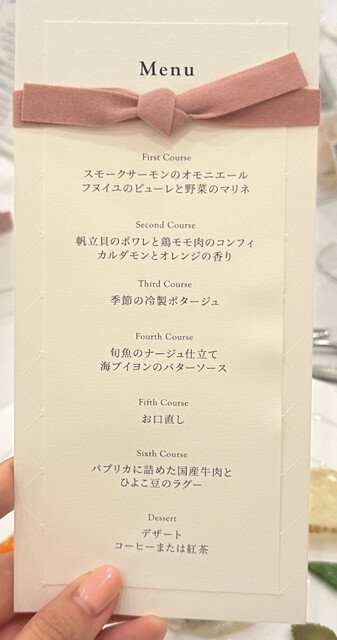 Menu
First Course
スモークサーモンのオモニエール
フヌイユのピューレと野菜のマリネ
Second Course
帆立貝のポワレと鶏モモ肉のコンフィ
カルダモンとオレンジの香り
Third Course
季節の冷製ポタージュ
Fourth Course
旬魚のナージュ仕立て
海ブイヨンのバターソース
Fifth Course
お口直し
Sixth Course
パプリカに詰めた国産牛肉と
ひよこ豆のラグー
Dessert
デザート
コーヒーまたは紅茶